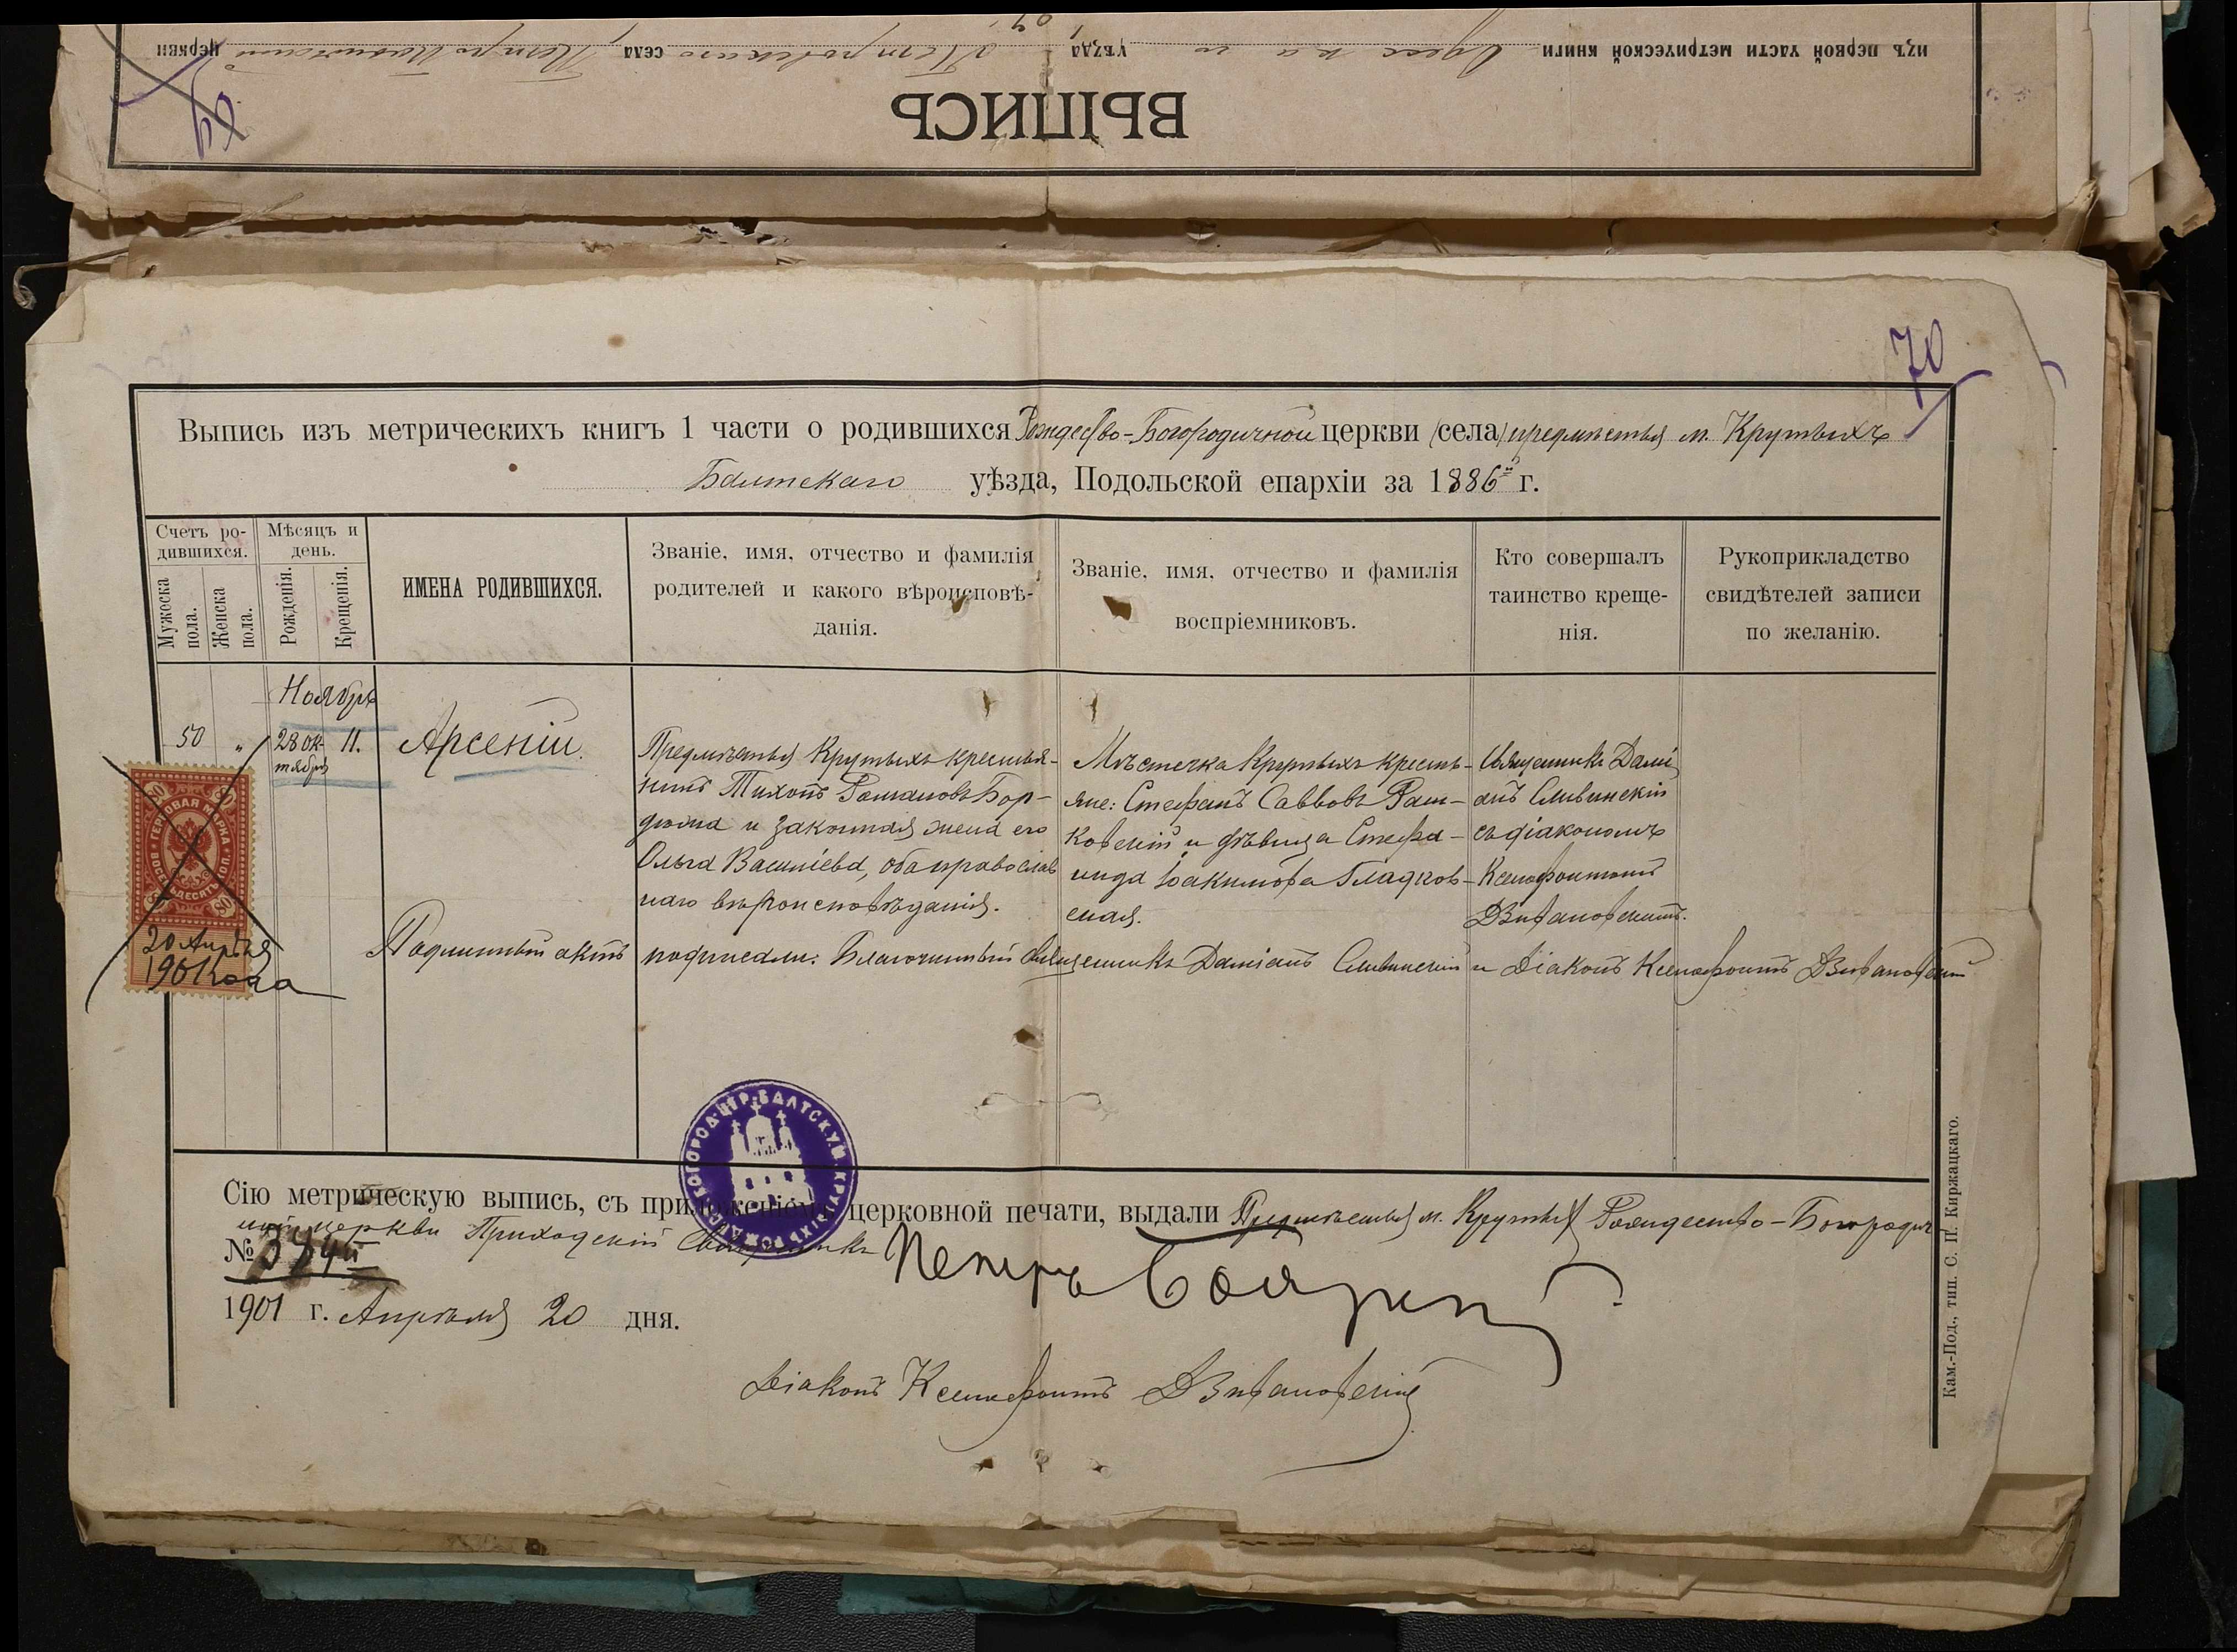 изъ первой части метрической книги Одесскаго уѣзда Петровскаго села церкви
ВЫПИСЬ
70
Выпись изъ метрическихъ книгъ 1 части о родившихся Рождество-Богородичной церкви (села) предмѣстья м. Крутыхъ
Балтскаго уѣзда, Подольской епархіи за 1886й г.
Счетъ ро-
дившихся.
Мужеска пола.
Женска пола.
Мѣсяцъ и
день.
Рожденія.
Крещенія.
ИМЕНА РОДИВШИХСЯ.
Званіе, имя, отчество и фамилія
родителей и какого вѣроисповѣ-
данія.
Званіе, имя, отчество и фамилія
воспріемниковъ.
Кто совершалъ
таинство креще-
нія.
Рукоприкладство
свидѣтелей записи
по желанію.
Ноябрь
50 " 28 ок- 11.
тября
Арсеній.
Предмѣстья Крутыхъ крестья-
нинъ Тихонъ Романовъ Бор-
дюжа и законная жена его
Ольга Василіева, оба православ
наго вѣроисповѣданія.
Мѣстечка Крутыхъ кресть-
яне: Стефанъ Савовъ Раш-
ковскій и дѣвица Стефа-
нида Іоакимова Гладков-
ская.
Священникъ Дамі
анъ Сливинскій
съ діакономъ
Ксенофонтомъ
Дзивановскимъ.
Подлинный актъ подписали: Благочинный Священникъ Даміанъ Сливинскій и Діаконъ Ксенофонтъ Дзивановскій
ГЕРБОВАЯ МАРКА
ВОСЕМЬДЕСЯТЬ КОП.
80 80
80 80
20 Апрѣля
1901 года
Сію метрическую выпись, съ приложеніемъ церковной печати, выдали Предмѣстья м. Крутыхъ Рождество-Богородич
ной церкви Приходскій Священникъ Петръ
№
1901 г. Апрѣля 20 дня.
Діаконъ Ксенофонтъ Дзивановскій
Кам.-Под., тип. С. П. Киржацкаго.